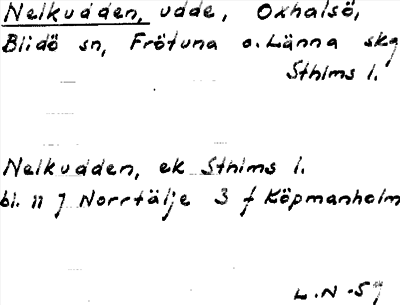 Nelkudden, udde, Oxhalsö,
Blidö sn, Frötuna o. Länna skg
Sthlms l.
Nelkudden, ek Sthlms l.
bl. 11 J Norrtälje 3 f Köpmanholm
L.N -59